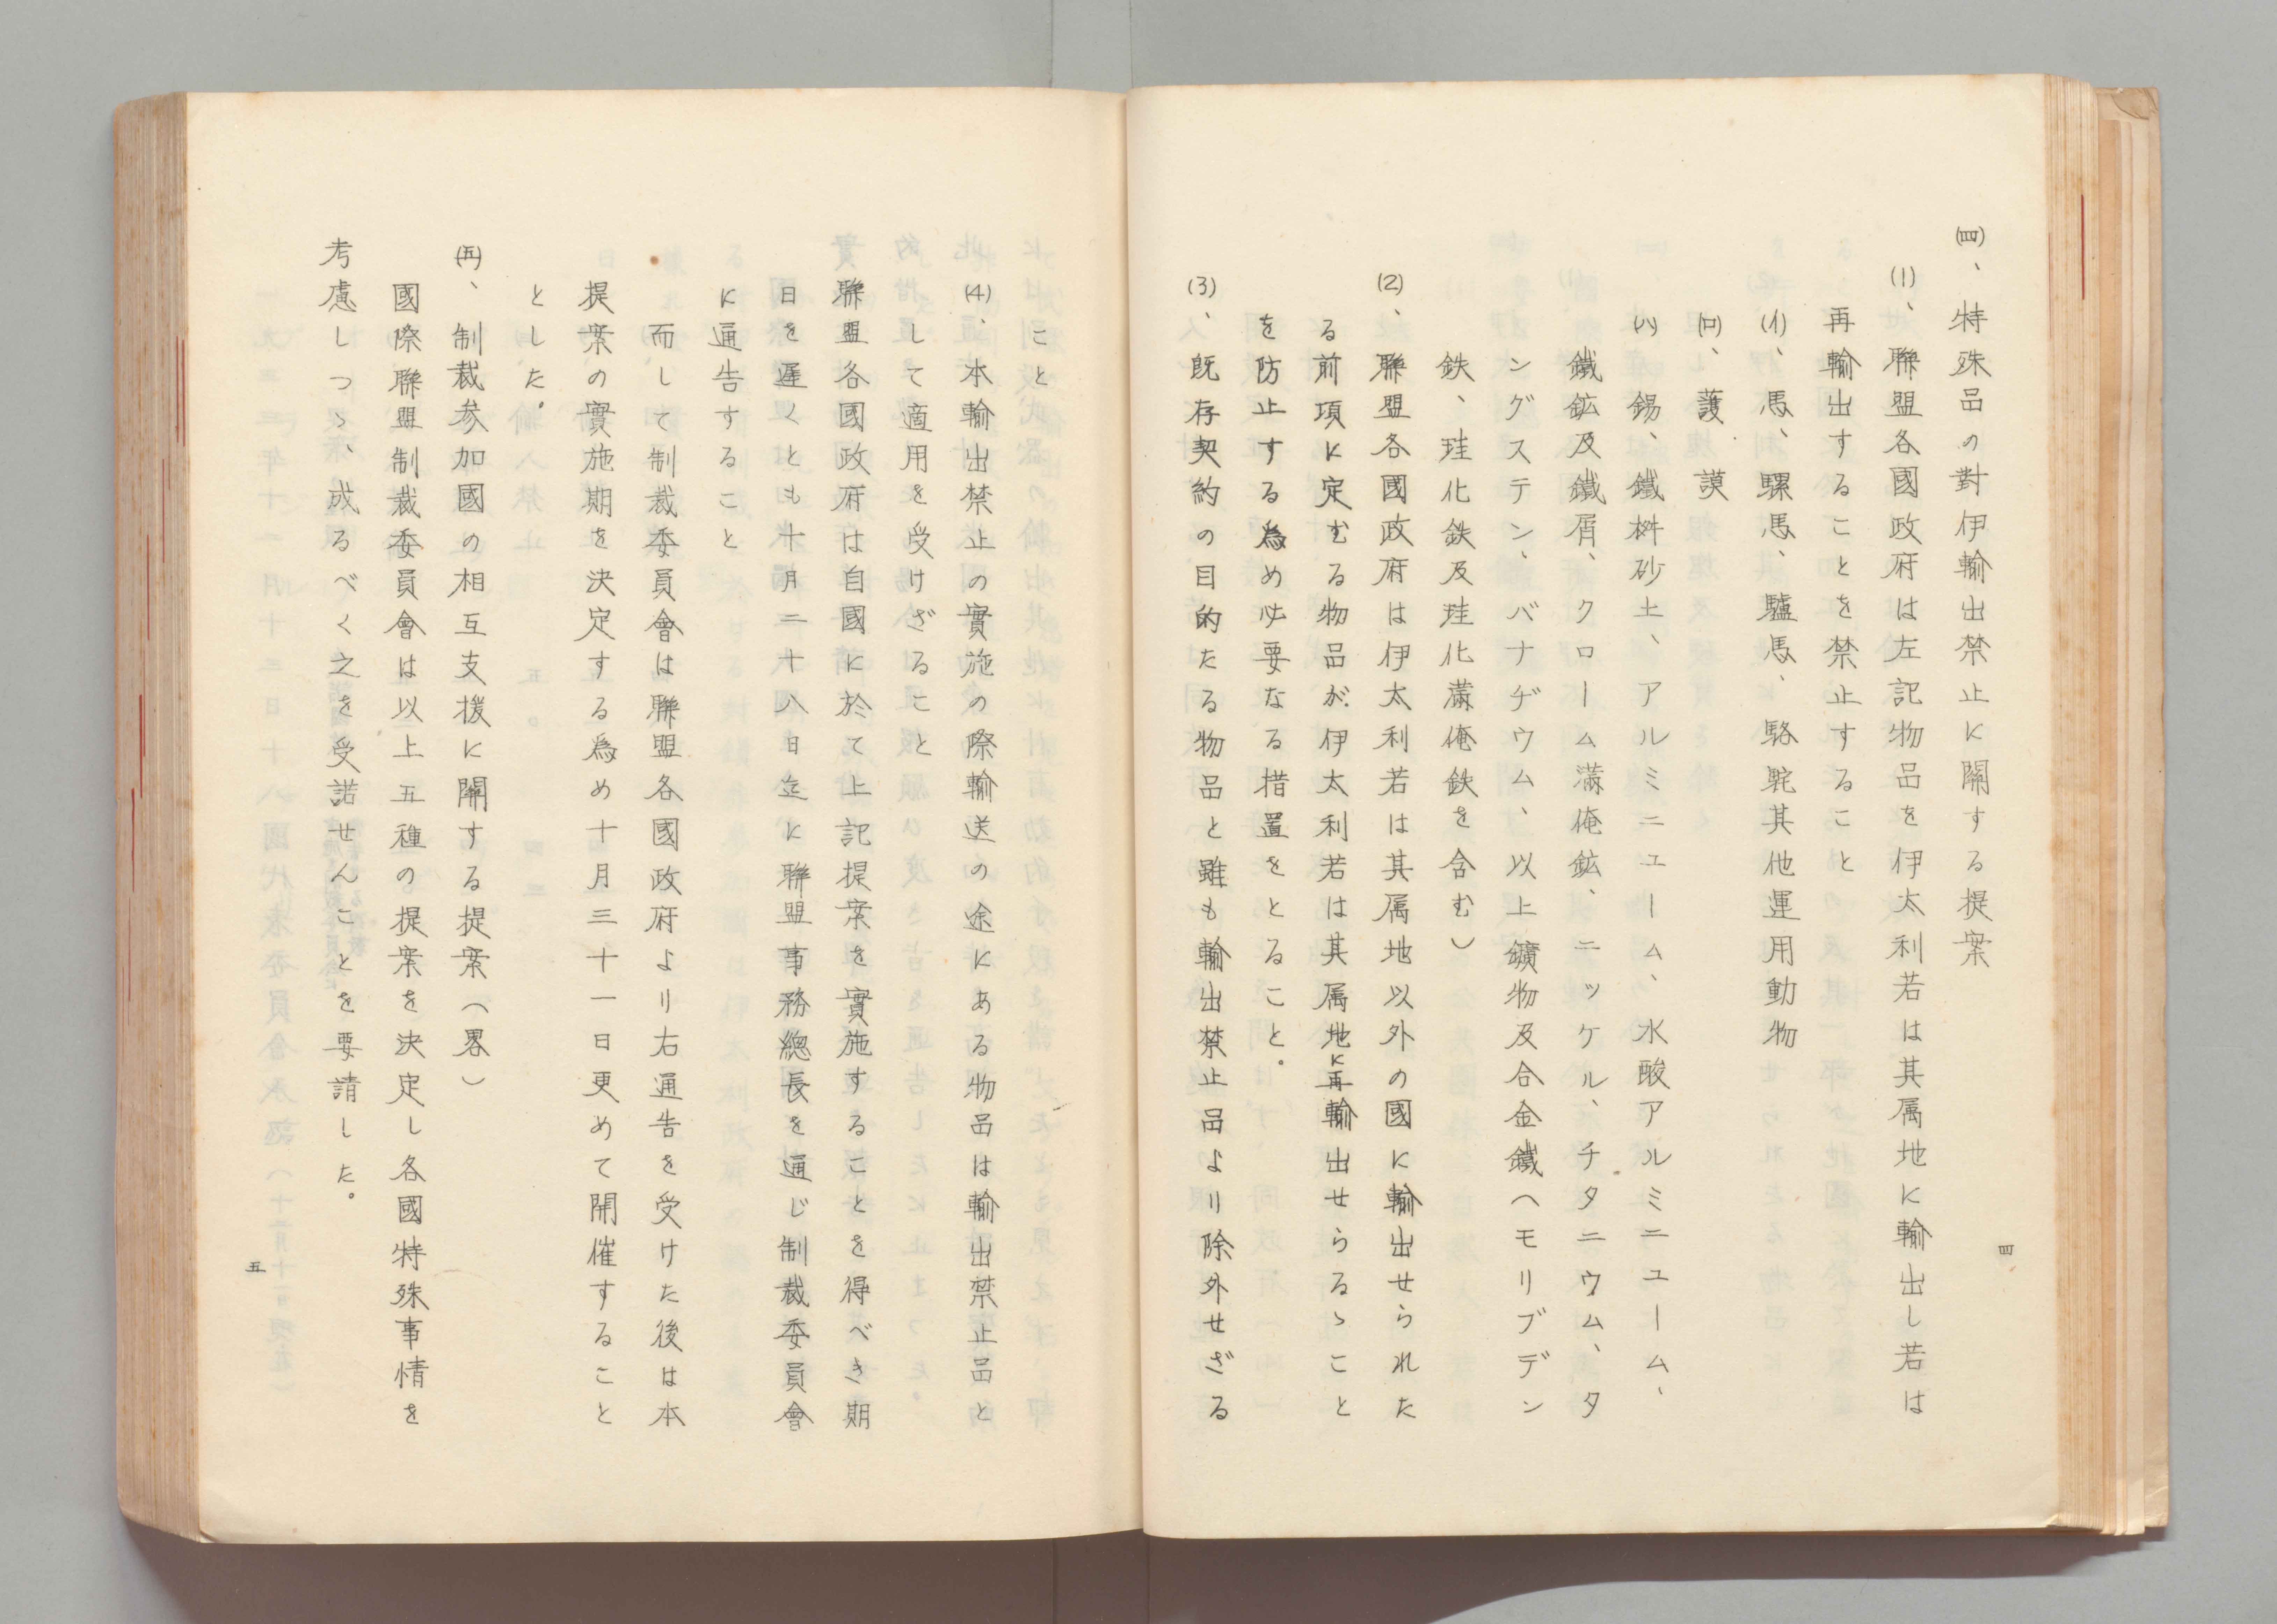 ㈣、特殊品の對伊輸出禁止に關する提案
(1)、聯盟各國政府は左記物品を伊太利若は其属地に輸出し若は
再輸出することを禁止すること
(イ)、馬、騾馬、驢馬、駱駝其他運用動物
(ロ)、護謨
(ハ)錫、鐵桝砂土、アルミニユーム、水酸アルミニユーム、
鐵鉱及鐵屑、クローム満俺鉱、ニツケル、チタニウム、タ
ングステン、バナヂウム、以上鑛物及合金鐵（モリブデン
鉄、珪化鉄及珪化満俺鉄を含む）
(2)、聯盟各國政府は伊太利若は其属地以外の國に輸出せられた
る前項に定むる物品が伊太利若は其属地に再輸出せらるゝこと
を防止する為め必要なる措置をとること。
(3)、既存契約の目的たる物品と雖も輸出禁止品より除外せざる
四
こと
(4)、本輸出禁止の實施の際輸送の途にある物品は輸出禁止品と
して適用を受けざること
聯盟各國政府は自國に於て上記提案を實施することを得べき期
日を遅くとも十月二十八日迄に聯盟事務總長を通じ制裁委員會
に通告すること
而して制裁委員會は聯盟各國政府より右通告を受けた後は本
提案の實施期を決定する為め十月三十一日更めて開催すること
とした。
㈤、制裁参加國の相互支援に關する提案（畧）
國際聯盟制裁委員會は以上五種の提案を決定し各國特殊事情を
考慮しつゝ、成るべく之を受諾せんことを要請した。
五